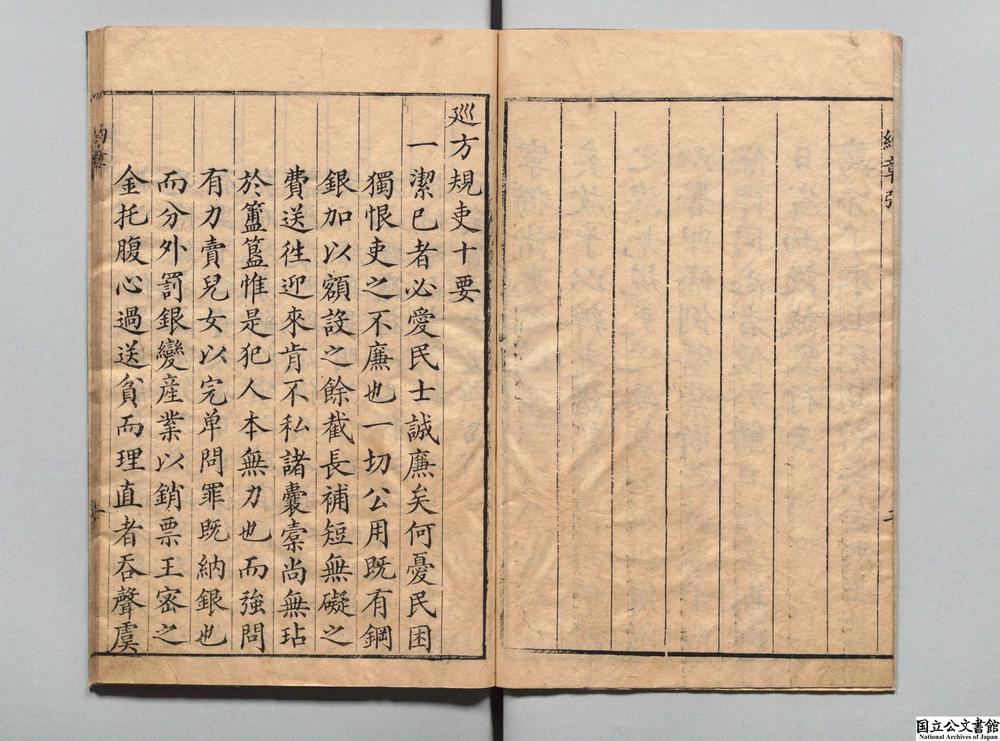 巡方規吏十要
一潔已者必愛民士誠廉矣何憂民困
獨恨吏之不廉也一切公用既有鋼
銀加以額設之餘截長補短無礙之
費送徃迎來肯不私諸囊橐尚無玷
於簠簋惟是犯人本無力也而強問
有力賣兒女以完单問罪既納銀也
而分外罰銀變産業以銷票王宻之
金托腹心過送貧而理直者吞聲虞
国立公文書館
National Archives of Japan